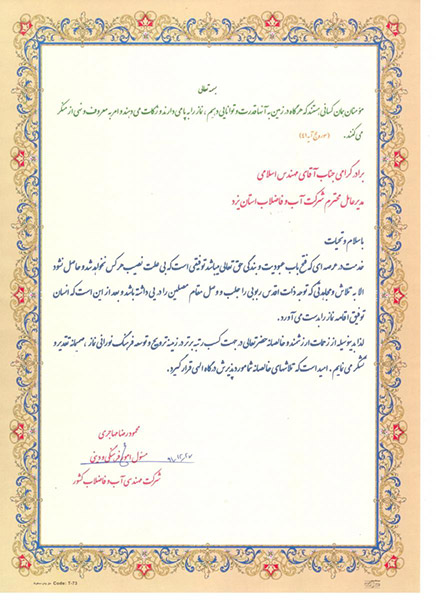 بسمه تعالی
مؤمنان همان کسانی هستند که هرگاه در زمین به آنها قدرت و توانایی دهیم، نماز را به پا می دارند و زکات می دهند و امر به معروف و نهی از منکر
می کنند. (سوره حج آیه ۴۱)
برادر گرامی جناب آقای مهندس اسلامی
مدیرعامل محترم شرکت آب و فاضلاب استان یزد
با سلام و تحیات
خدمت در عرصه ای که فتح باب عبودیت و بندگی حق تعالی میباشد توفیقی است که بی علت نصیب هر کس نخواهد شد و حاصل نشود
الا به تلاش و مجاهدتی که توجه ذات اقدس ربوبی را جلب و وصل مقام مصلین را در پی داشته باشد و بعد از این است که انسان
توفیق اقامه نماز را بدست می آورد.
لذا بدینوسیله از زحمات ارزشمند و خالصانه حضرتعالی در جهت کسب رتبه برتر در زمینه ترویج و توسعه فرهنگ نورانی نماز، صمیمانه تقدیر و
تشکر می نمایم. امید است که تلاشهای خالصانه شما مورد پذیرش درگاه الهی قرار گیرد.
محمودرضا مهاجری
مسئول امور فرهنگی و دینی
شرکت مهندسی آب و فاضلاب کشور
Code: T-73